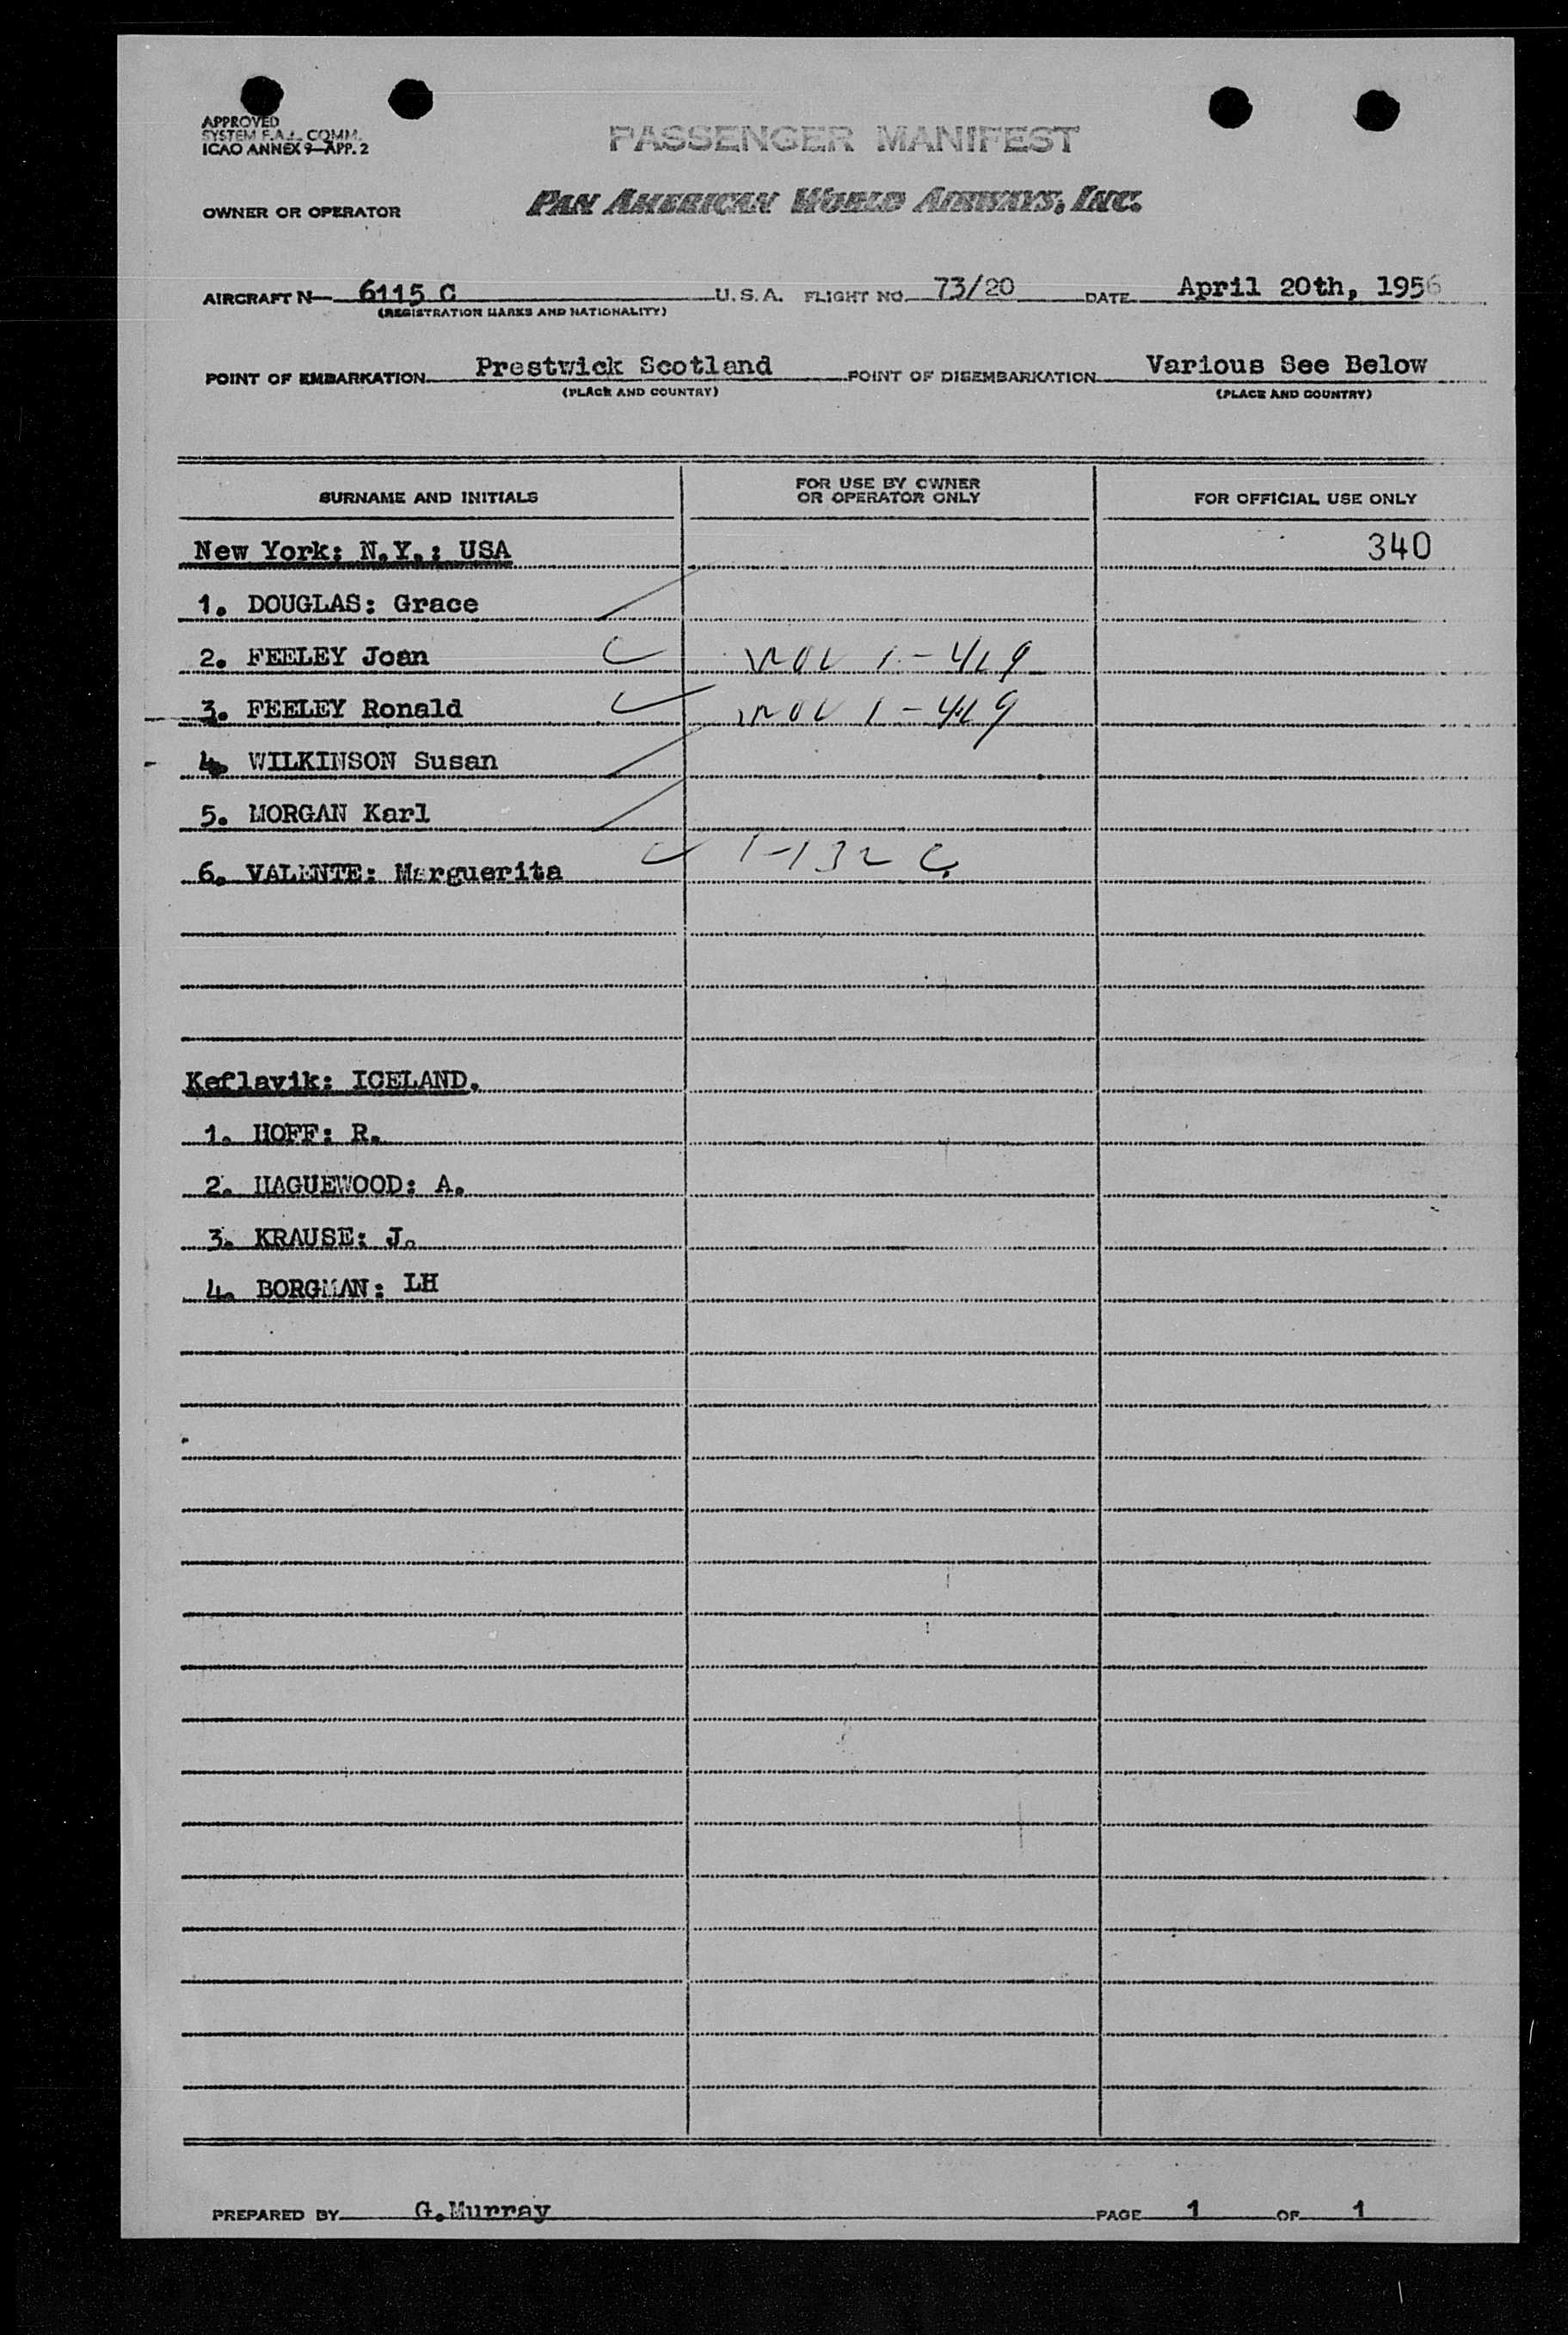 APPROVED
SYSTEM F.A.L. COMM.
ICAO ANNEX 9-APP. 2
PASSENGER MANIFEST
OWNER OR OPERATOR PAN AMERICAN WORLD AIRWAYS, INC.
AIRCRAFT N- 6115 C U.S.A. FLIGHT NO. 73/20 DATE April 20th, 1956
(REGISTRATION MARKS AND NATIONALITY)
POINT OF EMBARKATION Prestwick Scotland POINT OF DISEMBARKATION Various See Below
(PLACE AND COUNTRY) (PLACE AND COUNTRY)
SURNAME AND INITIALS FOR USE BY OWNER OR OPERATOR ONLY FOR OFFICIAL USE ONLY
New York: N.Y.: USA 340
1. DOUGLAS: Grace
2. FEELEY Joan 1-419
3. FEELEY Ronald 1-419
4. WILKINSON Susan
5. MORGAN Karl
6. VALENTE: Marguerita 1-132 C
Keflavik: ICELAND.
1. HOFF: R.
2. HAGUEWOOD: A.
3. KRAUSE: J.
4. BORGMAN: LH
PREPARED BY G.Murray PAGE 1 OF 1